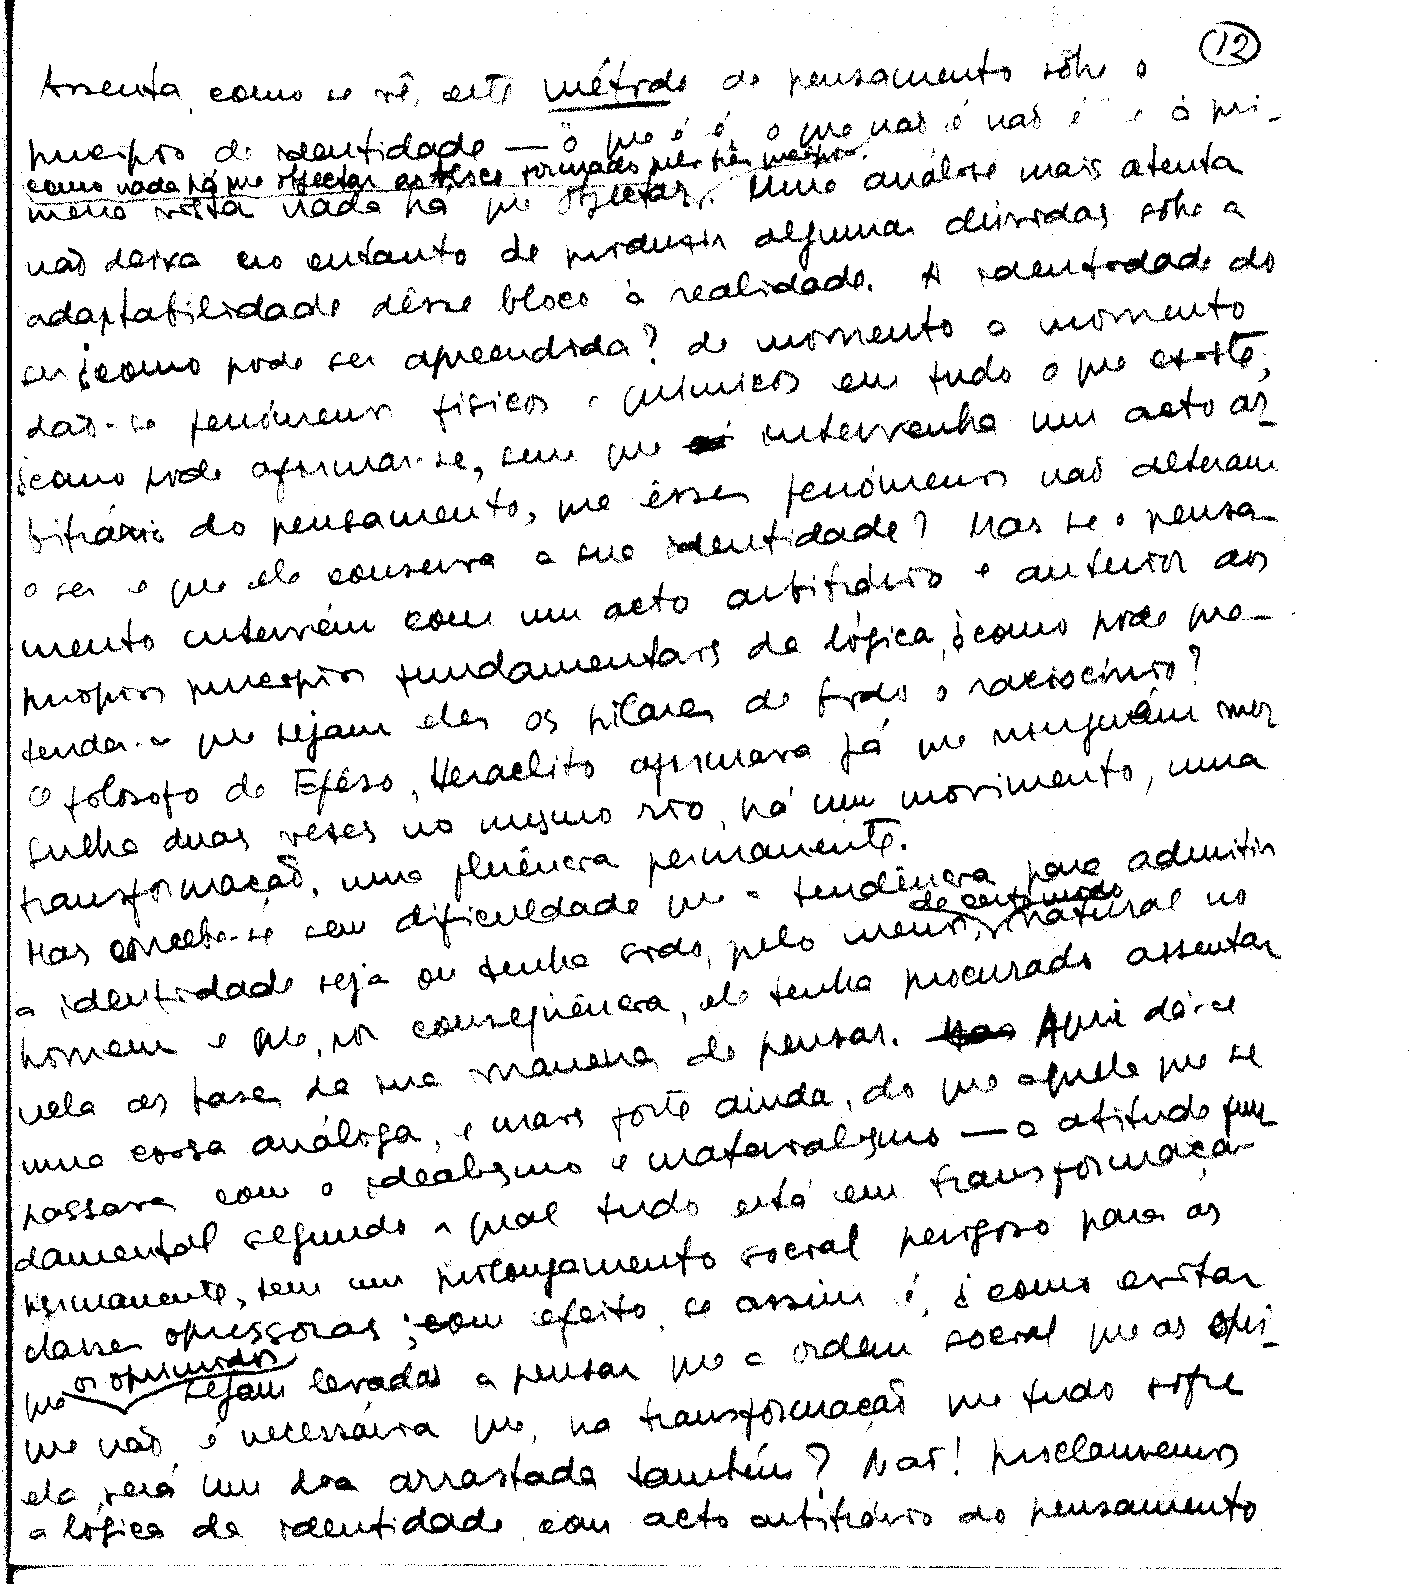 12
Assenta, como se vê, este método de pensamento sôbre o
princípio de identidade — o que é é, o que não é não é e à pri-
como nada há que objectar ao bloco formado pelos três princípios.
meira vista nada há que objectar. Uma análise mais atenta
não deixa no entanto de produzir algumas dúvidas sôbre a
adaptabilidade dêsse bloco à realidade. A identidade do
ser ¿como pode ser apreendida? de momento a momento
dão-se fenómenos físicos e químicos em tudo o que existe;
¿como pode afirmar-se, sem que intervenha um acto ar-
bitrário do pensamento, que êsses fenómenos não alteram
o ser e que ele conserva a sua identidade? Mas se o pensa-
mento intervém com um acto arbitrário e anterior aos
próprios princípios fundamentais da lógica, ¿como pode pre-
tender-se que sejam eles os pilares de todo o raciocínio?
O filósofo de Efeso, Heraclito afirmava já que ninguém mer
gulha duas vezes no mesmo rio, há um movimento, uma
transformação, uma fluência permanente.
Mas concebe-se sem dificuldade que a tendência para admitir
de certo modo
a identidade seja ou tenha sido, pelo menos, natural no
homem e que, por conseqüência, ele tenha procurado assentar
nela as bases da sua maneira de pensar. Aqui dá-se
uma coisa análoga, e mais forte ainda, do que aquela que se
passava com o idealismo e materialismo — a atitude fun
damental segundo a qual tudo está em transformação
permanente, tem um prolongamento social perigoso para as
classes opressoras; com efeito, se assim é, ¿como evitar
os oprimidos
que sejam levados a pensar que a ordem social que as opri-
me não é necessária que, na transformação que tudo sofre
ela será um dia arrastada também? Não! proclamemos
a lógica da identidade com acto arbitrário do pensamento